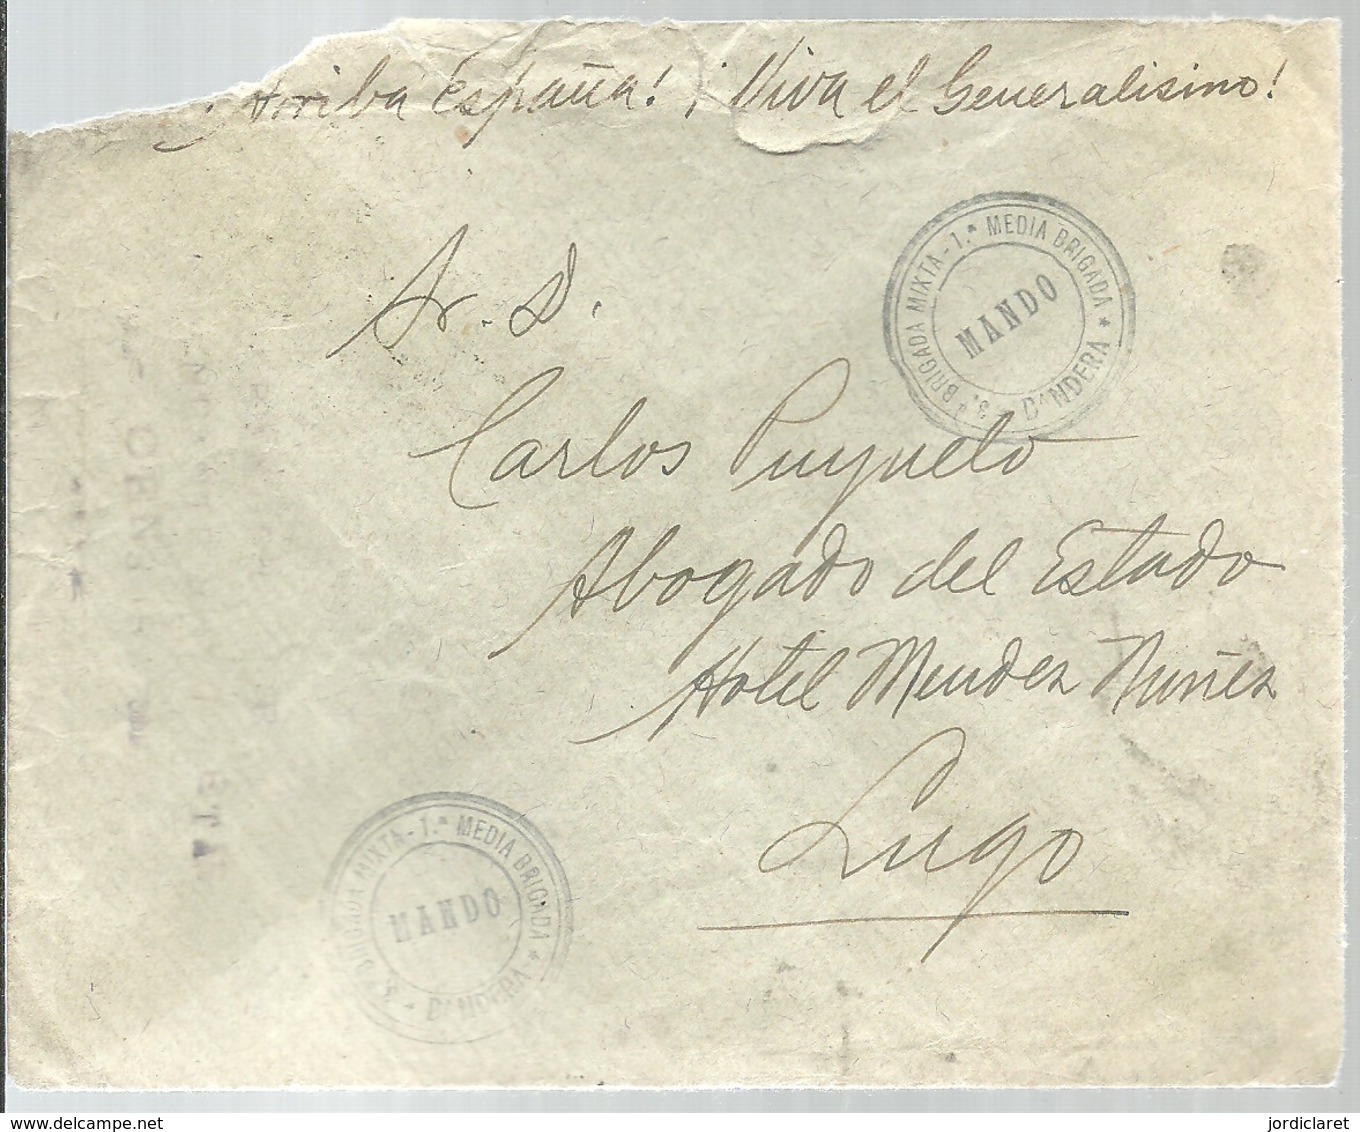 ¡Arriba España! ¡Viva el Generalisimo!
Sr. D.
Carlos Puyuelo
Abogado del Estado
Hotel Mendez Nuñez
Lugo
BRIGADA MIXTA - 1.ª MEDIA BRIGADA * 3.ª BANDERA
MANDO
BRIGADA MIXTA - 1.ª MEDIA BRIGADA * 3.ª BANDERA
MANDO
www.delcampe.net
jordiclaret